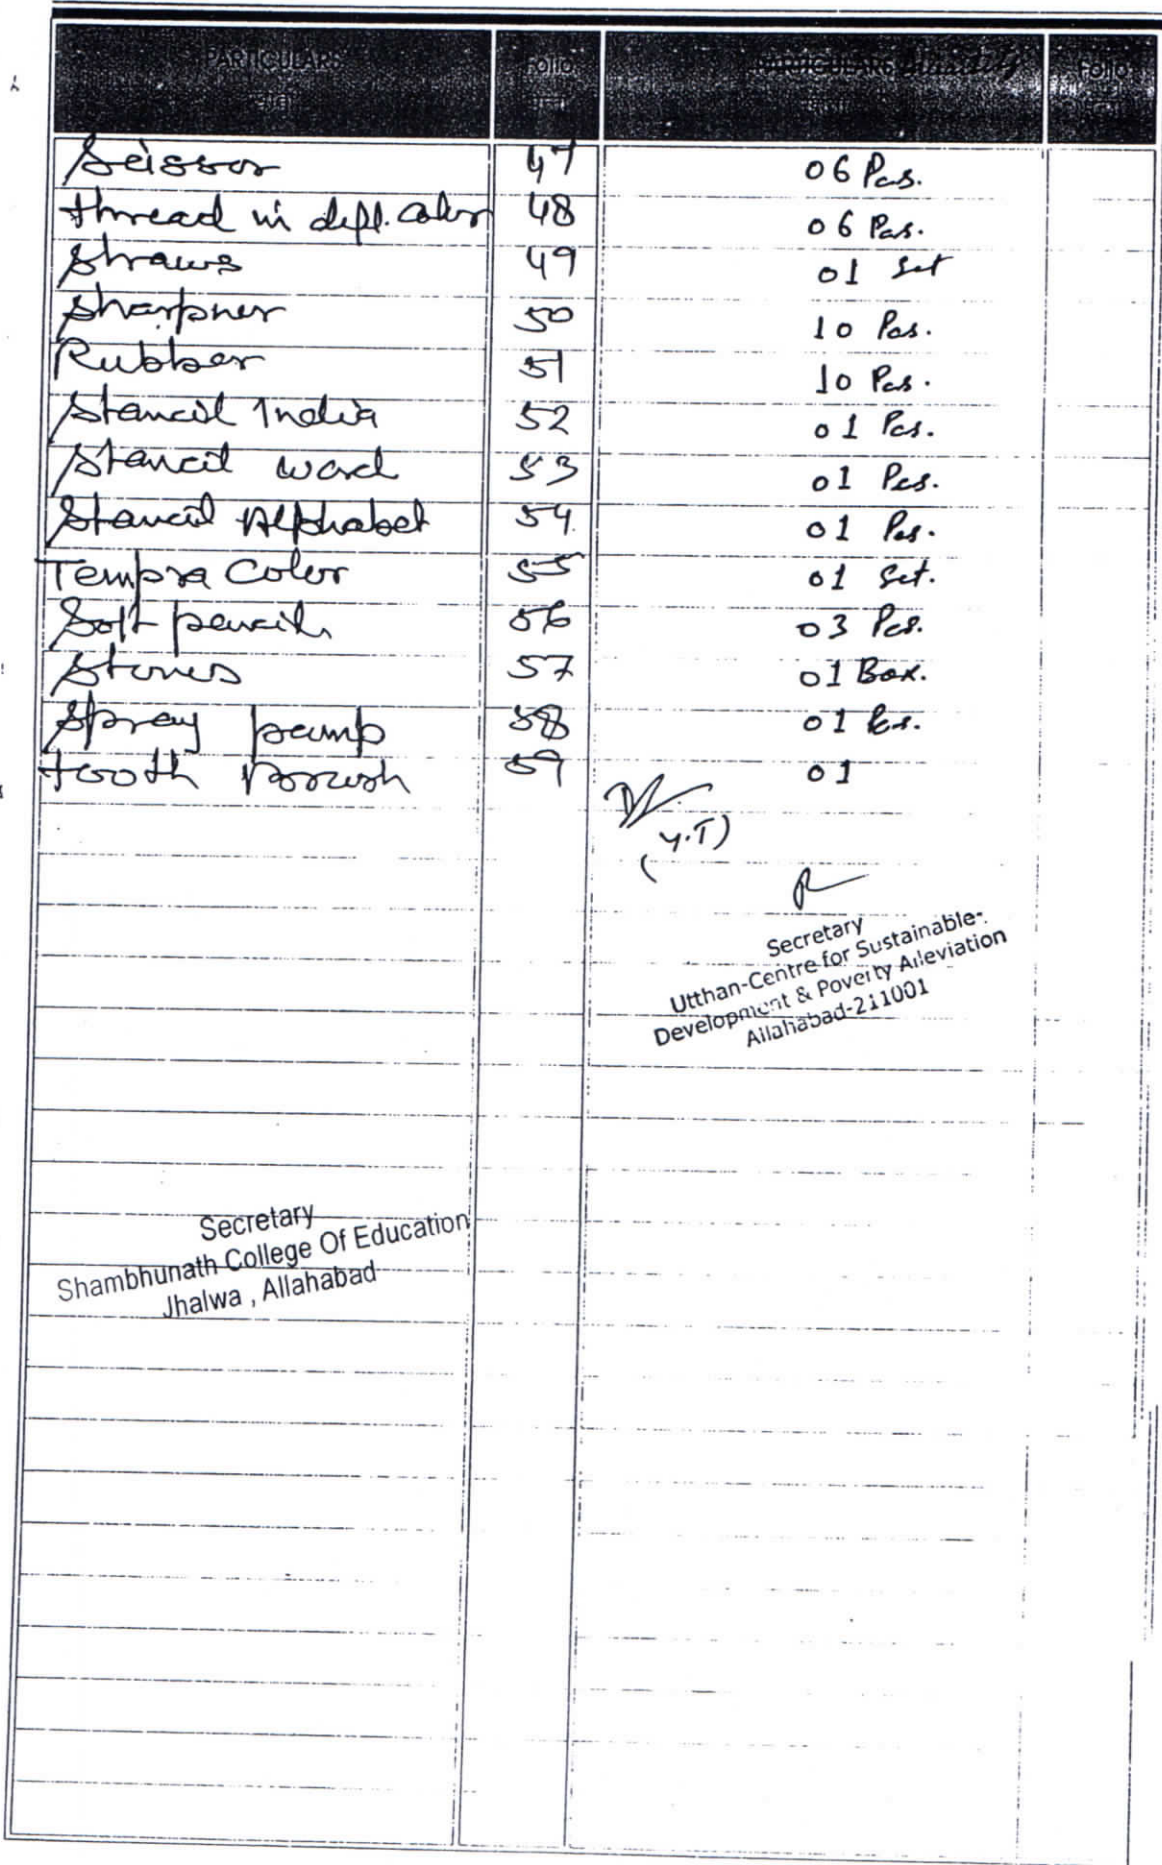 PARTICULARS Folio PARTICULARS Quantity Folio
Scissor 47 06 Pcs.
thread in diff. Color 48 06 Pcs.
Straws 49 01 Set
Sharpner 50 10 Pcs.
Rubber 51 10 Pcs.
Stancil India 52 01 Pcs.
Stancil word 53 01 Pcs.
Stancil Alphabet 54. 01 Pcs.
Tempra Color 55 01 Set.
Soft pencil 56 03 Pcs.
Stones 57 01 Box.
Spray pamp 58 01 Pcs.
tooth Brush 59 01
(Y.T)
Secretary
Utthan-Centre for Sustainable-
Development & Poverty Alleviation
Allahabad-211001
Secretary
Shambhunath College Of Education
Jhalwa , Allahabad